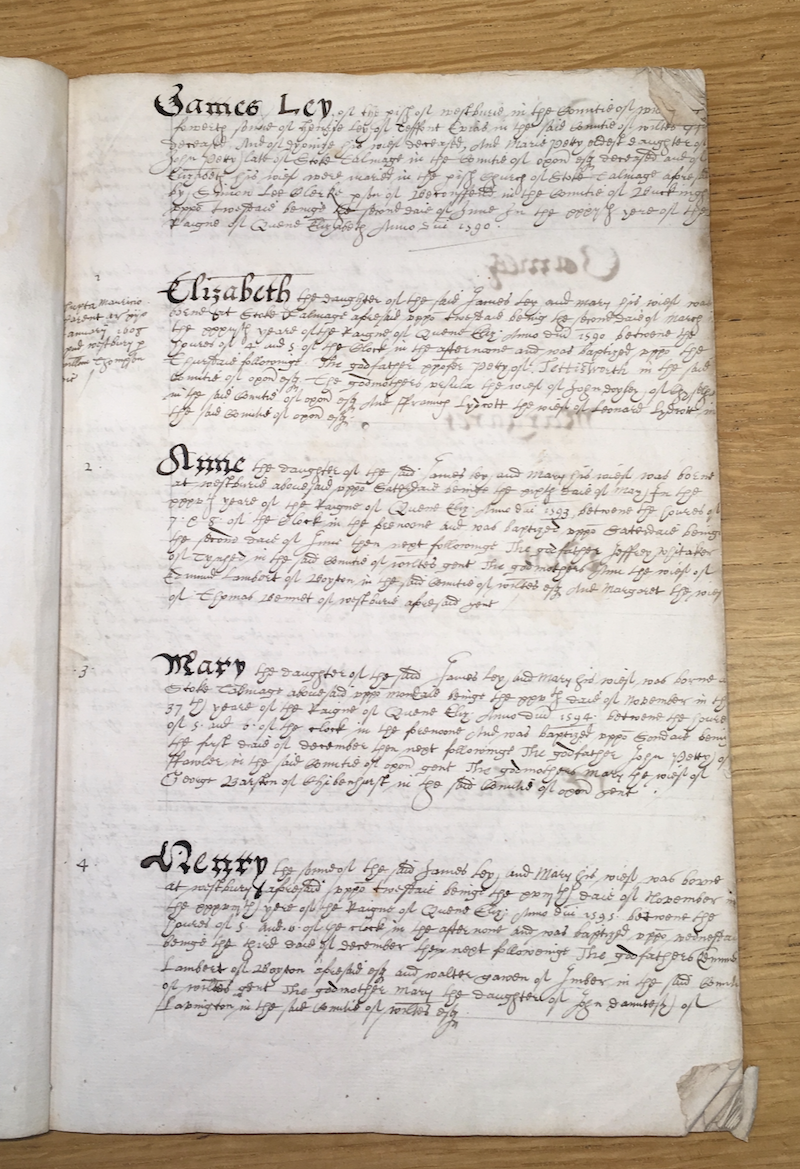 James Ley of the pish of westburie in the Countie of
fowerth sonne of Henrie Ley of Teffont Evias in the said Countie of wiltes
deceased And of Dyonise his wief deceased, And Marie Petty eldest daughter of
John Petty late of Stoke Talmage in the Countie of oxon esq deceased and of
Elizabeth his wief were maried in the pish Church of Stoke Talmage
by Lee Clerke pson of in the Countie of
uppo twesdaie beinge the second daie of June In the yere of the
Raigne of Quene Elizabeth Anno Dni 1590
1
Elizabeth the daughter of the said James Ley and mary his wief was
borne at Stoke Talmage aforesaid uppo twesdaie being the second daie of March
the yeare of the Raigne of Quene Eliz: Anno dni 1590 betwene the
houres of 4 and 5 of the Clock in the afternoone and was baptized uppo the
Thursdaie followinge The godfather Petty of Tettisworth in the said
Countie of oxon esq The godmothers ursula the wief of John Doyley of
in the said Countie of oxon esq And ffrancis Lydcott the wief of Leonard Lydcott in
the said Countie of oxon esq
January 1608
2
Anne the daughter of the said James Ley and Mary his wief was borne
at westburie abovesaid uppo Saterdaie beinge the daie of May In the
yeare of the Raigne of Quene Eliz: Anno dni 1593 betwene the houres of
7 & 8 of the Clock in the forenoone and was baptized uppo Saterdaie being
the second daie of June then next followinge The godfather Jeffrey whitaker
of Tynhed in the said Countie of wiltes gent The godmothers Anne the wief of
Edmund Lambert of Boyton in the said Countie of wiltes esq And Margaret the wief
of Thomas Bennet of westburie aforesaid gent
3
Mary the daughter of the said James Ley and Mary his wief was borne
Stoke Talmage abovesaid uppo mondaie beinge the daie of November in the
37th yeare of the Raigne of Quene Eliz: Anno dni 1594 betwene the houres
of 5 and 6 of the clock in the forenoone And was baptized uppo Sondaie being
the first daie of december then next followinge The godfather John Petty of
ffawler in the said Countie of oxon gent The godmothers mary the wief of
George Barston of Chibenhurst in the said Countie of oxon gent
4
Henry the sonne of the said James Ley and Mary his wief was borne
at westbury aforesaid uppo twesdaie beinge the daie of November in
the yere of the Raigne of Quene Eliz: Anno dni 1595 betwene the
houres of 5 And 6 of the clock in the afternone and was baptized uppo wednesdaie
beinge the third daie of december then next followinge The godfathers Edmund
Lambert of Boyton aforesaid esq and walter gawen of Imber in the said Countie
of wiltes gent The godmother mary the daughter of John danutesey of
Lavington in the said Countie of wiltes esq